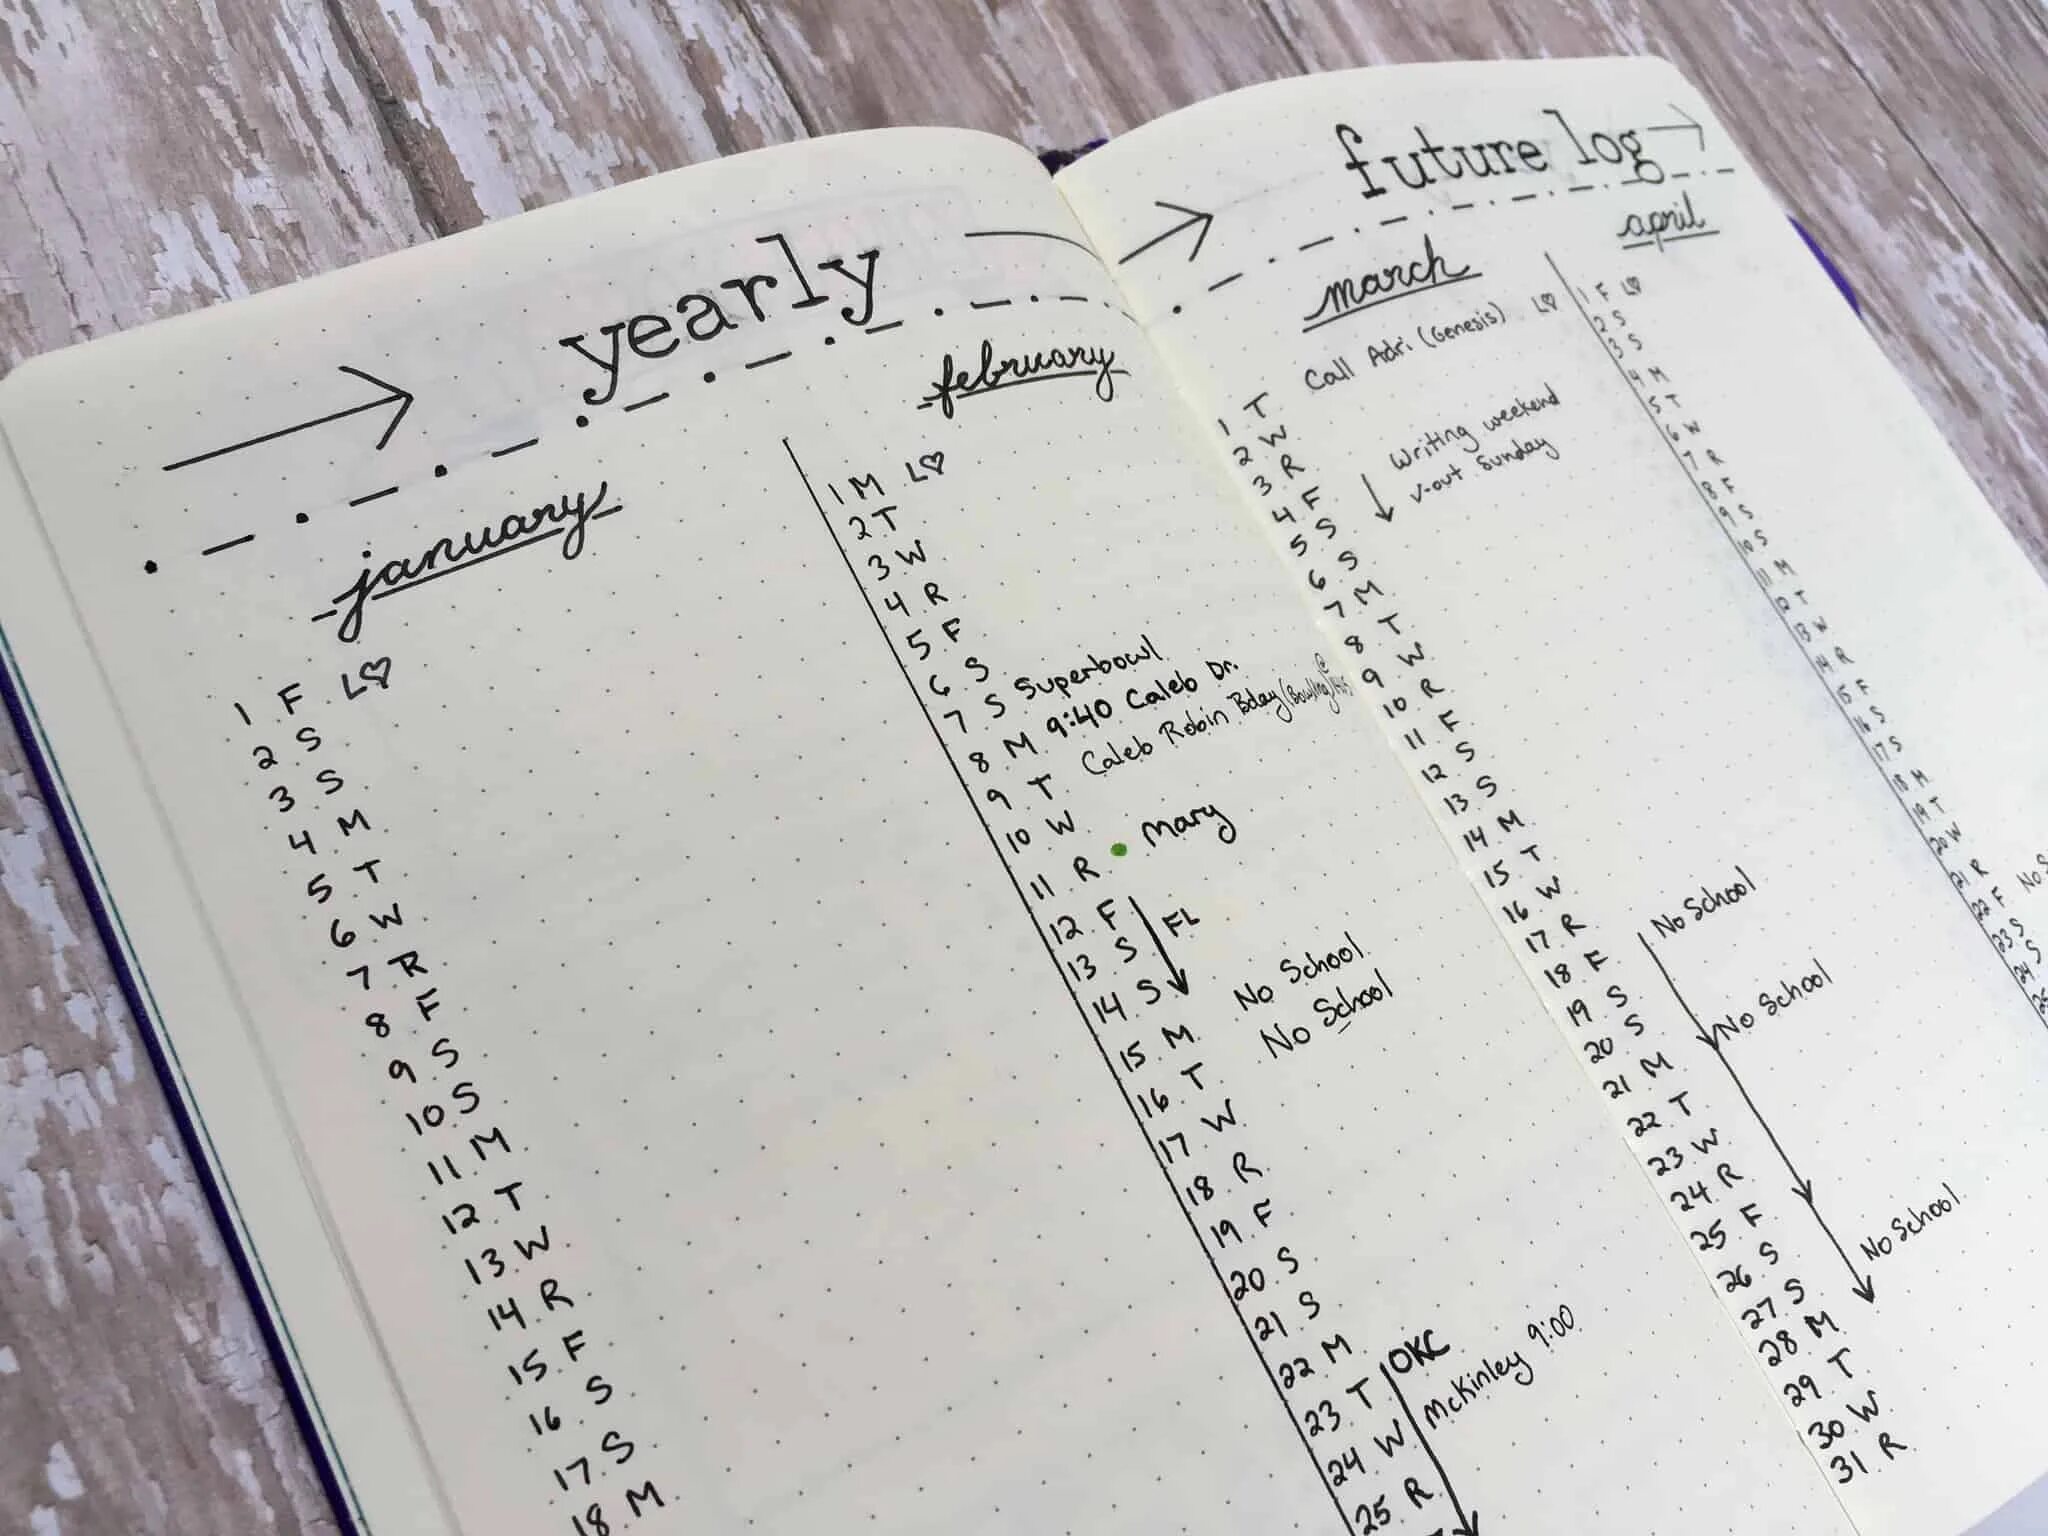 yearly
january
1 F L♡
2 S
3 S
4 M
5 T
6 W
7 R
8 F
9 S
10 S
11 M
12 T
13 W
14 R
15 F
16 S
17 S
18 M
february
1 M L♡
2 T
3 W
4 R
5 F
6 S
7 S Superbowl
8 M 9:40 Caleb Dr.
9 T Caleb Robin Bday (Bowling)
10 W
11 R • Mary
12 F FL
13 S
14 S
15 M No School
16 T No School
17 W
18 R
19 F
20 S
21 S
22 M
23 T OKC
24 W McKinley 9:00
25 R
future log
march
1 T Call Adri (Genesis) L♡
2 W
3 R
4 F Writing weekend
5 S v-out Sunday
6 S
7 M
8 T
9 W
10 R
11 F
12 S
13 S
14 M
15 T
16 W
17 R
18 F No School
19 S
20 S
21 M No School
22 T
23 W
24 R
25 F
26 S
27 S
28 M No School
29 T
30 W
31 R
april
1 F L♡
2 S
3 S
4 M
5 T
6 W
7 R
8 F
9 S
10 S
11 M
12 T
13 W
14 R
15 F
16 S
17 S
18 M
19 T
20 W
21 R
22 F
23 S
24 S
25